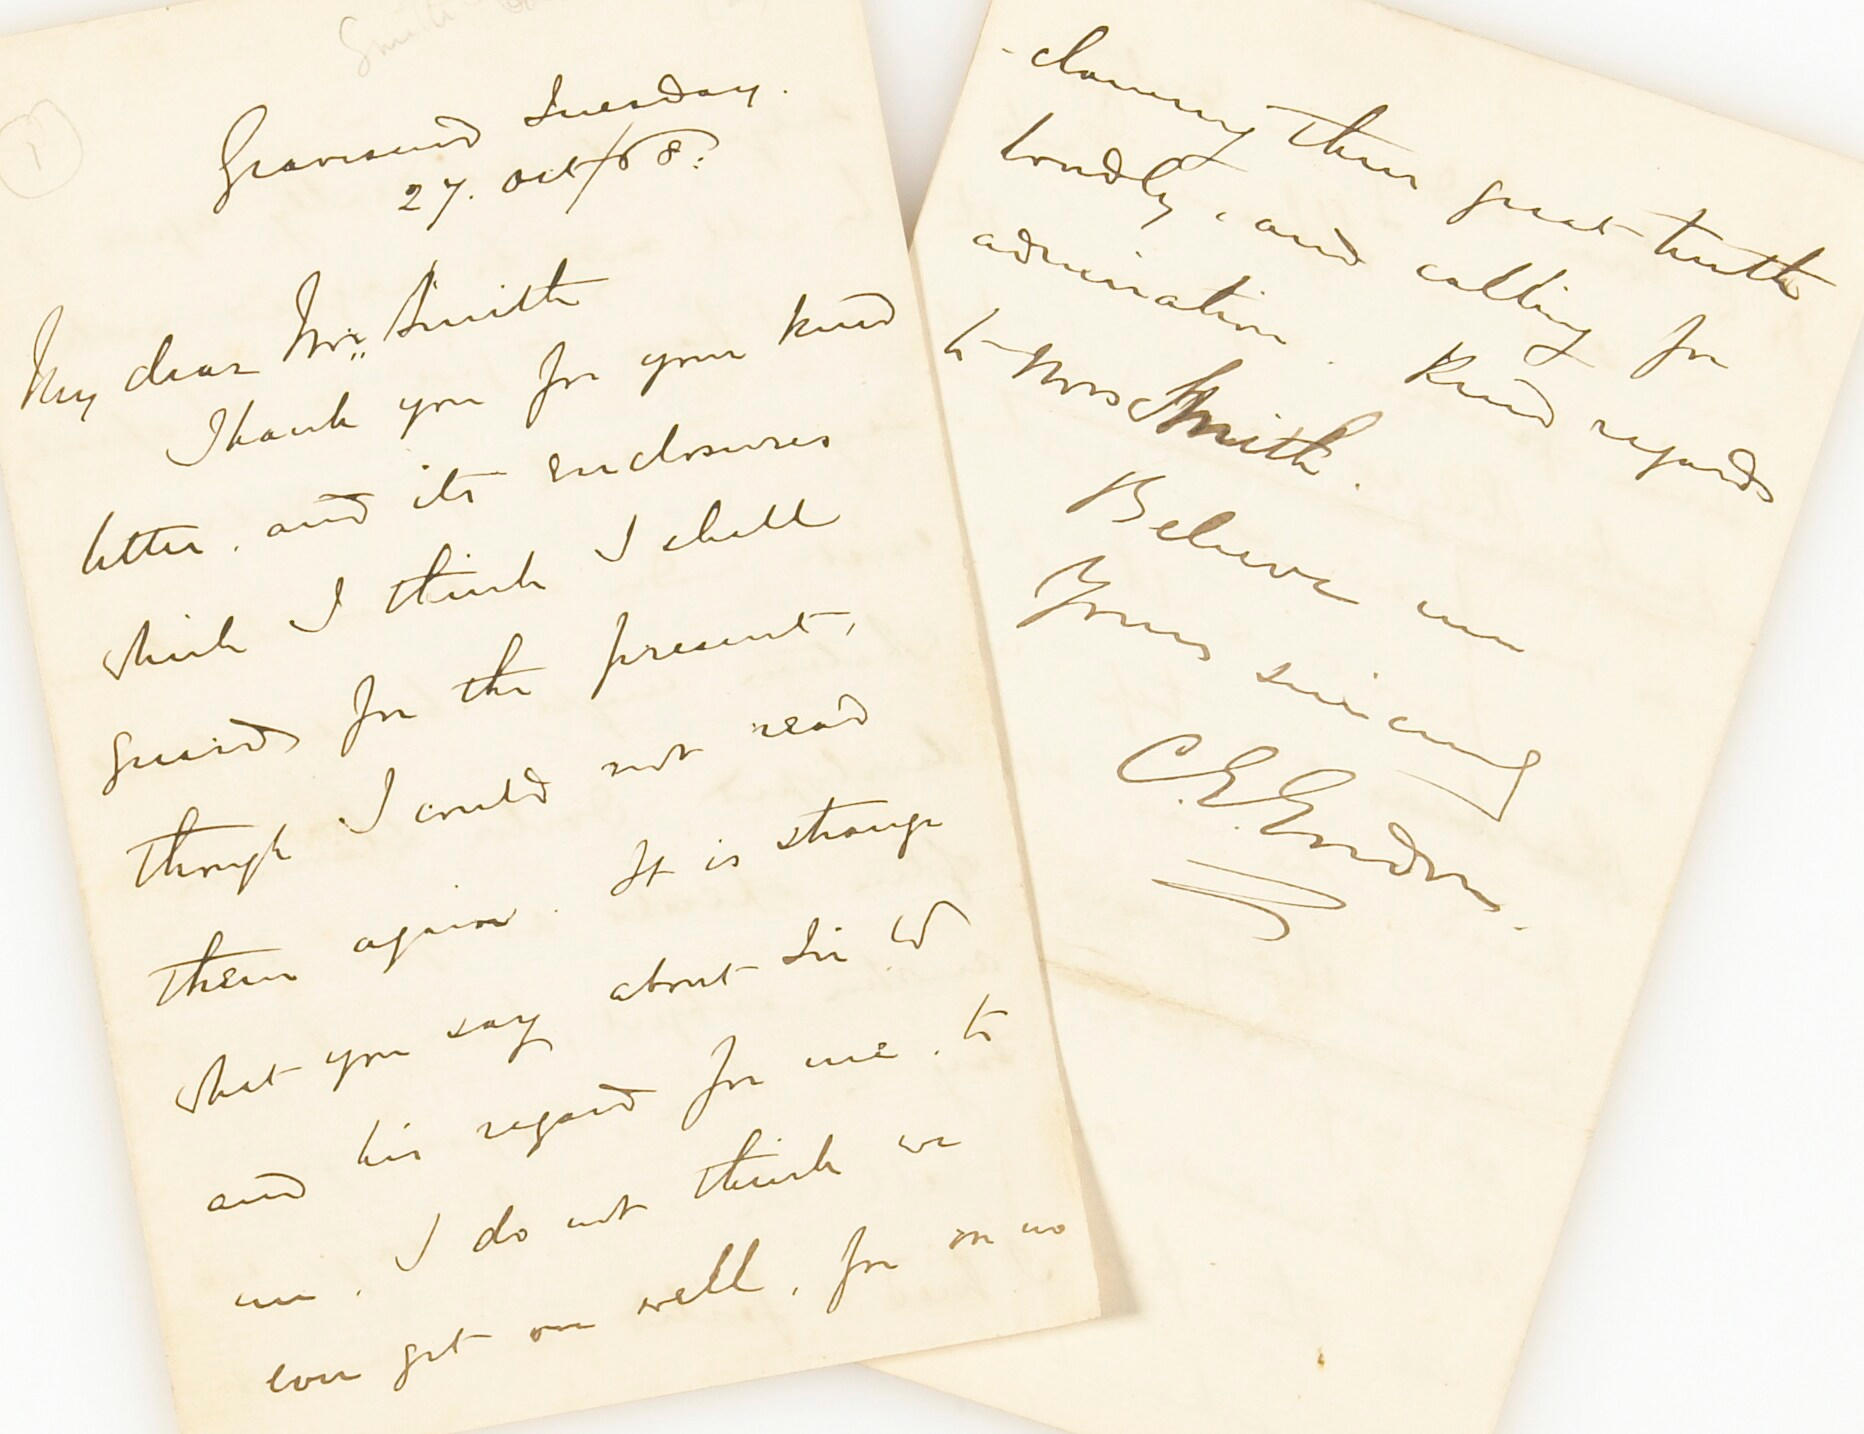 Smith
1
Gravesend Tuesday.
27. Oct/68:
My dear Mr. Smith
Thank you for your kind
letter, and its enclosures
which I think I shall
guard for the present,
though I could not read
them again. It is strange
what you say about Sir W
and his regard for me, to
me, I do not think we
ever get on well, for on no
-claiming their great truth
loudly, and calling for
admiration. Kind regards
to Mrs Smith.
Believe me
Yours sincerely
C. E. Gordon.